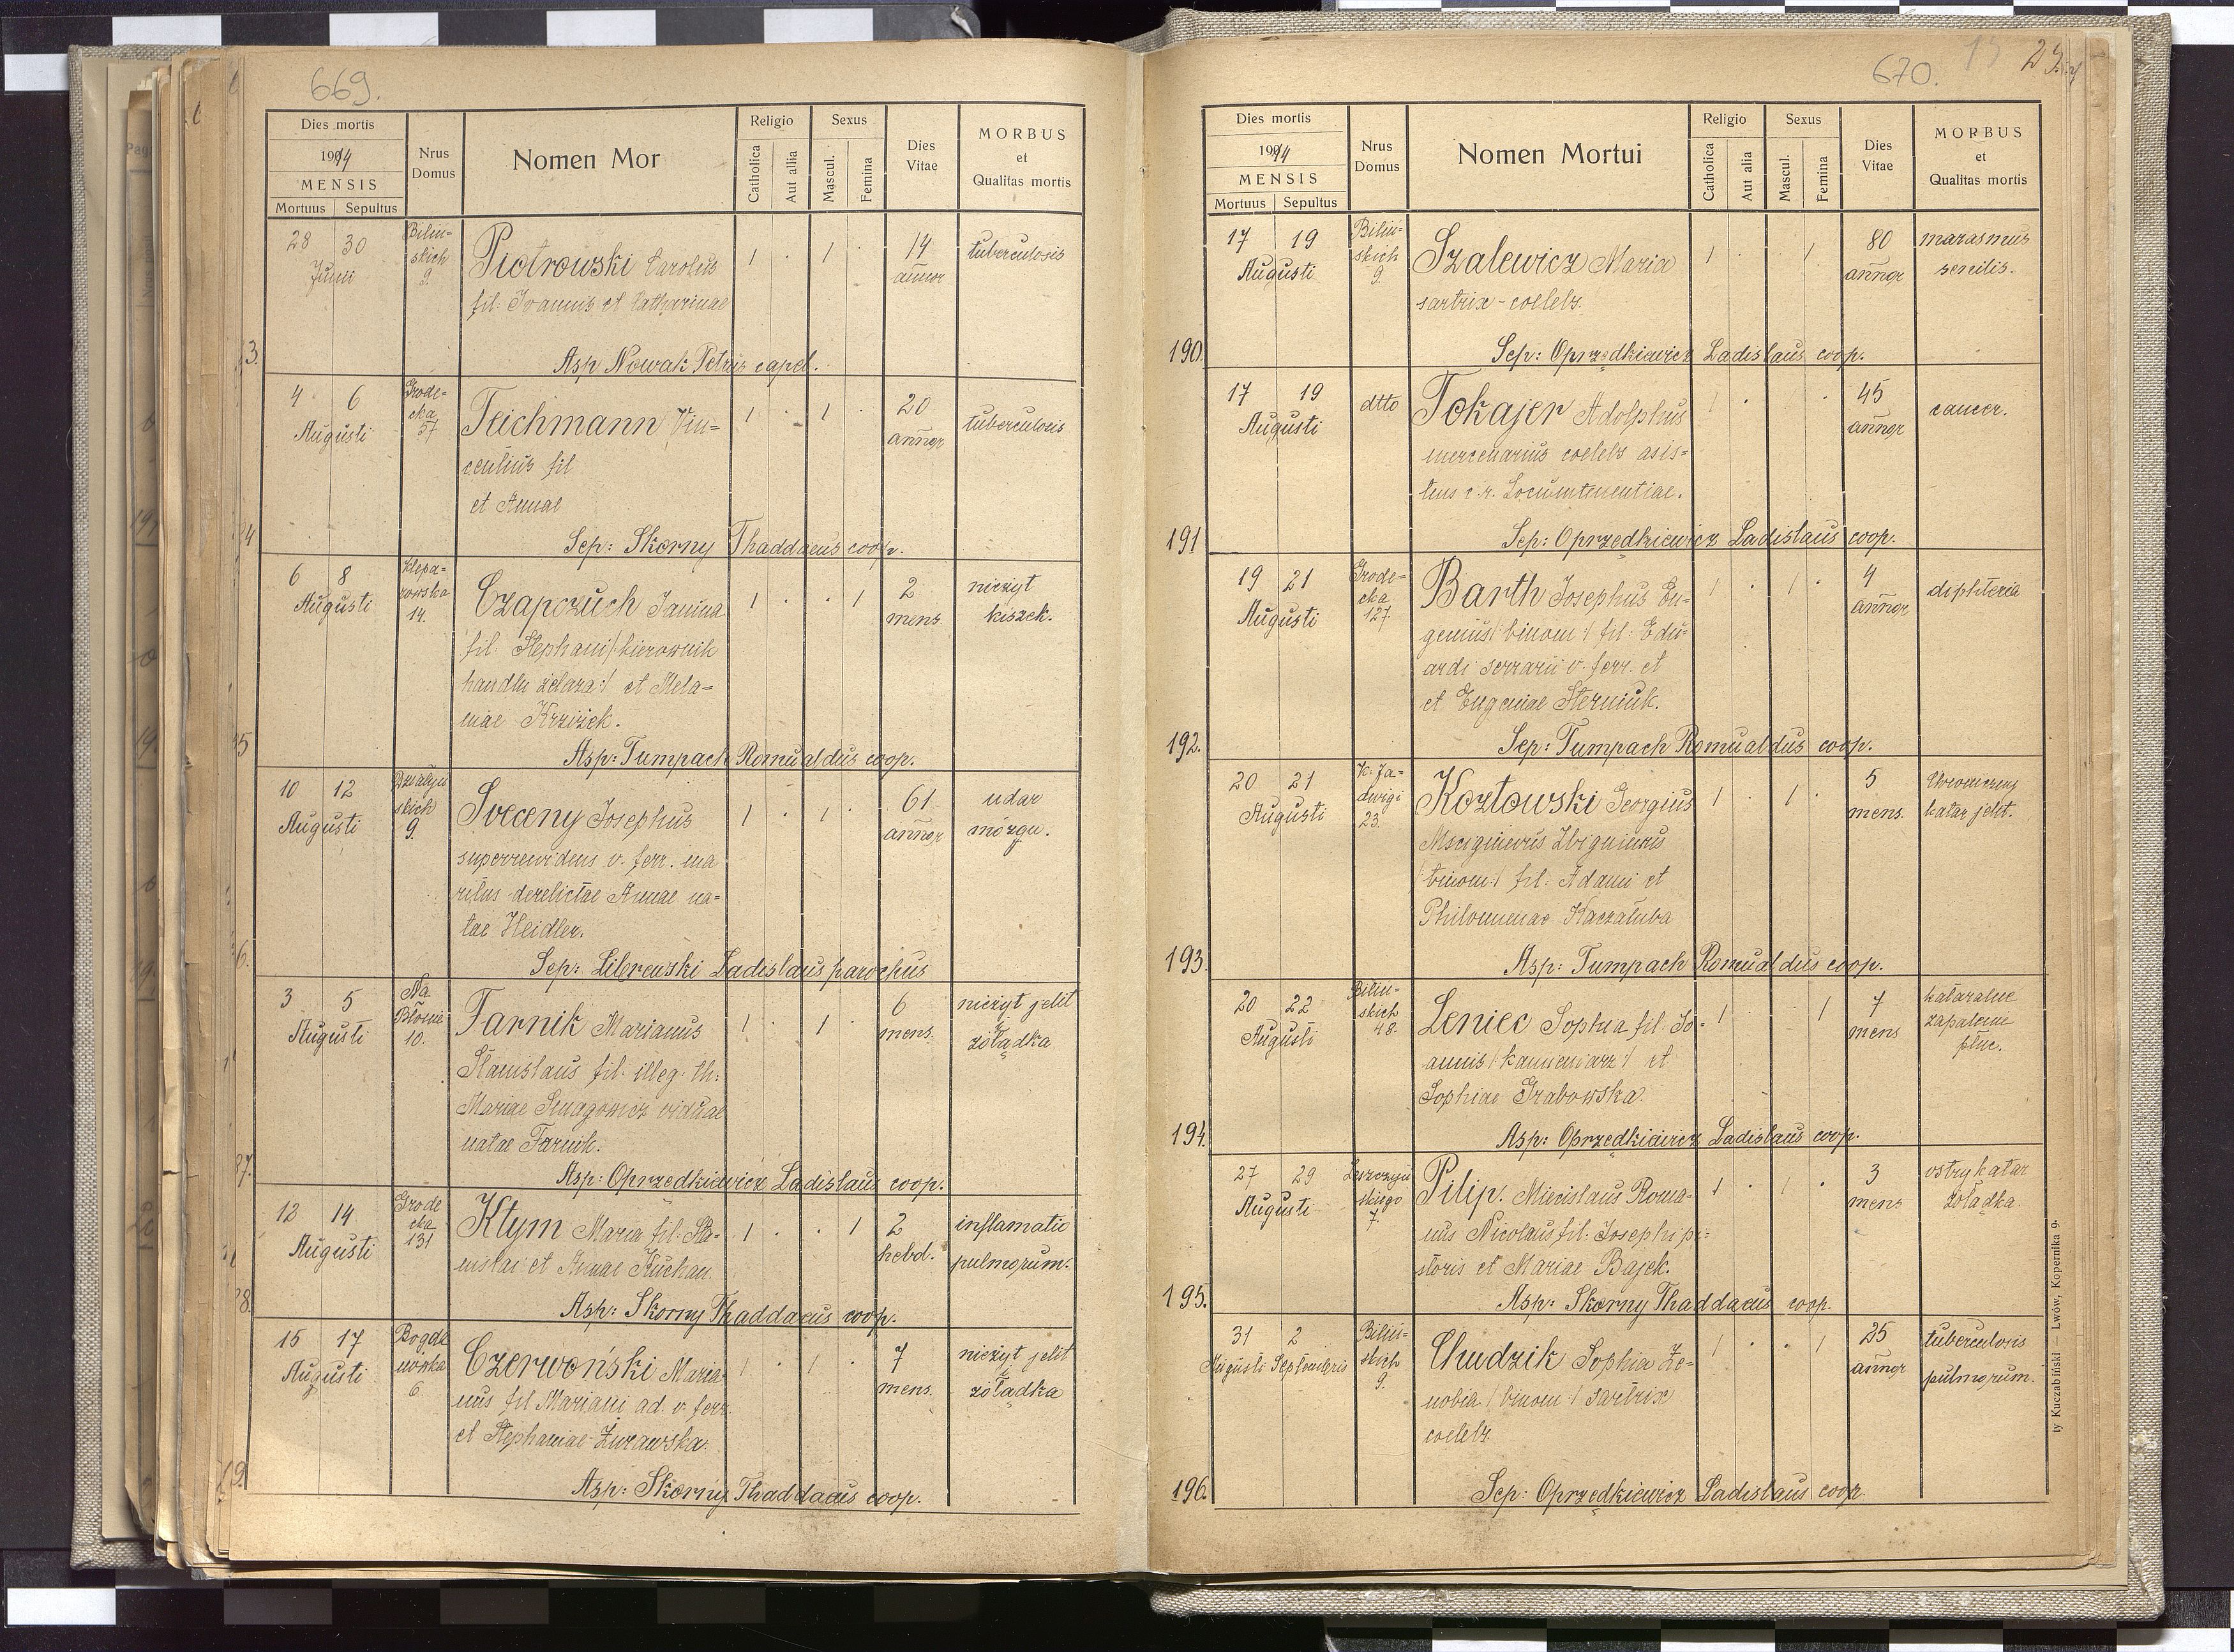 669.
Dies mortis
1914
MENSIS
Mortuus Sepultus
Nrus Domus
Nomen Mor
Religio
Catholica
Aut alia
Sexus
Mascul.
Femina
Dies Vitae
MORBUS
et
Qualitas mortis
28 30
Junii
Biliń=
skich
9.
Piotrowski Carolus
fil. Joannis et Catharinae
1 . 1 .
14
annor
tuberculosis
3.
Asp Nowak Petrus capel.
4 6
Augusti
Grode=
cka
57
Teichmann Vin=
centius fil
et Annae
1 . 1 .
20
annor
tuberculosis
4
Sep: Skorny Thaddaeus coop.
6 8
Augusti
Klepa=
rowska
14.
Czapczuch Janina
fil. Stephani /: kierownik
handlu żelaza :/ et Mela=
niae Krziżek.
1 . . 1
2
mens
nieżyt
kiszek.
5
Asp: Tumpach Romualdus coop.
10 12
Augusti
Działyń
skich
9.
Sveceny Josephus
superrevidens v. ferr. ma
ritus derelictae Annae na=
tae Heidler.
1 . 1 .
61
annor
udar
mózgu.
6.
Sep: Librewski Ladislaus parochus
3 5
Augusti
Na
Błonie
10.
Farnik Marianus
Stanislaus fil. illeg. th.
Mariae Smagowicz viduae
natae Farnik.
1 . 1 .
6
mens.
nieżyt jelit
i
żołądka
87.
Asp: Oprzędkiewicz Ladislaus coop.
12 14
Augusti
Grode
cka
131
Kłym Maria fil. Sta=
nislai et Annae Kuchan.
1 . . 1
2
hebd.
inflamatio
pulmorum.
8.
Asp: Skorny Thaddaeus coop.
15 17
Augusti
Bogda
nówka
6.
Czerwoński Maria
nus fil Mariani ad. v. ferr.
et Stephaniae Żurawska.
1 . 1 .
7
mens.
nieżyt jelit
i
żołądka
9.
Asp: Skorny Thaddaeus coop.
670. 13 29.
Dies mortis
1914
MENSIS
Mortuus Sepultus
Nrus Domus
Nomen Mortui
Religio
Catholica
Aut alia
Sexus
Mascul.
Femina
Dies Vitae
MORBUS
et
Qualitas mortis
17 19
Augusti
Biliń=
skich
9.
Szalewicz Maria
sartrix - coelebs.
1 . 1
80
annor
marasmus
senilis.
190.
Sep: Oprzędkiewicz Ladislaus coop.
17 19
Augusti
dtto
Tokajer Adolphus
mercenarius coelebs asis=
tens c. r. Locumtenentiae.
1 . . .
45
annor
cancer.
191
Sep: Oprzędkiewicz Ladislaus coop.
19 21
Augusti
Grode=
cka
127.
Barth Josephus Eu=
genius /: binom :/ fil: Edu=
ardi serrarii v. ferr. et
et Eugeniae Sterniuk.
1 . 1 .
4
annor
diphteria
192.
Sep: Tumpach Romualdus coop.
20 21
Augusti
K. Ja=
dwigi
23.
Kozłowski Georgius
Mscignievus Zbignievus
/ binom :/ fil: Adami et
Philomenae Kaczałuba
1 . 1 .
5
mens.
Chroniczny
katar jelit.
193.
Asp: Tumpach Romualdus coop.
20 22
Augusti
Biliń=
skich
48.
Leniec Sophia fil: Jo=
annis /: kamieniarz :/ et
Sophiae Grabowska.
1 . 1
7
mens
kataralne
zapalenie
płuc.
194.
Asp: Oprzędkiewicz Ladislaus coop.
27 29
Augusti
Leszczyń
skiego
7.
Pilip. Miecislaus Roma=
nus Nicolaus fil: Josephi pi=
storis et Mariae Bajek.
1 . 1 .
3
mens
ostry katar
żołądka.
195.
Asp: Skorny Thaddaeus coop.
31 2
Augusti Septembris
Biliń=
skich
9.
Chudzik Sophia Ze=
nobia /: binom :/ sartrix
coelebs.
1 . . 1
25
annor
tuberculosis
pulmorum.
196.
Sep: Oprzędkiewicz Ladislaus coop.
ty Kuczabiński — Lwów, Kopernika 9.